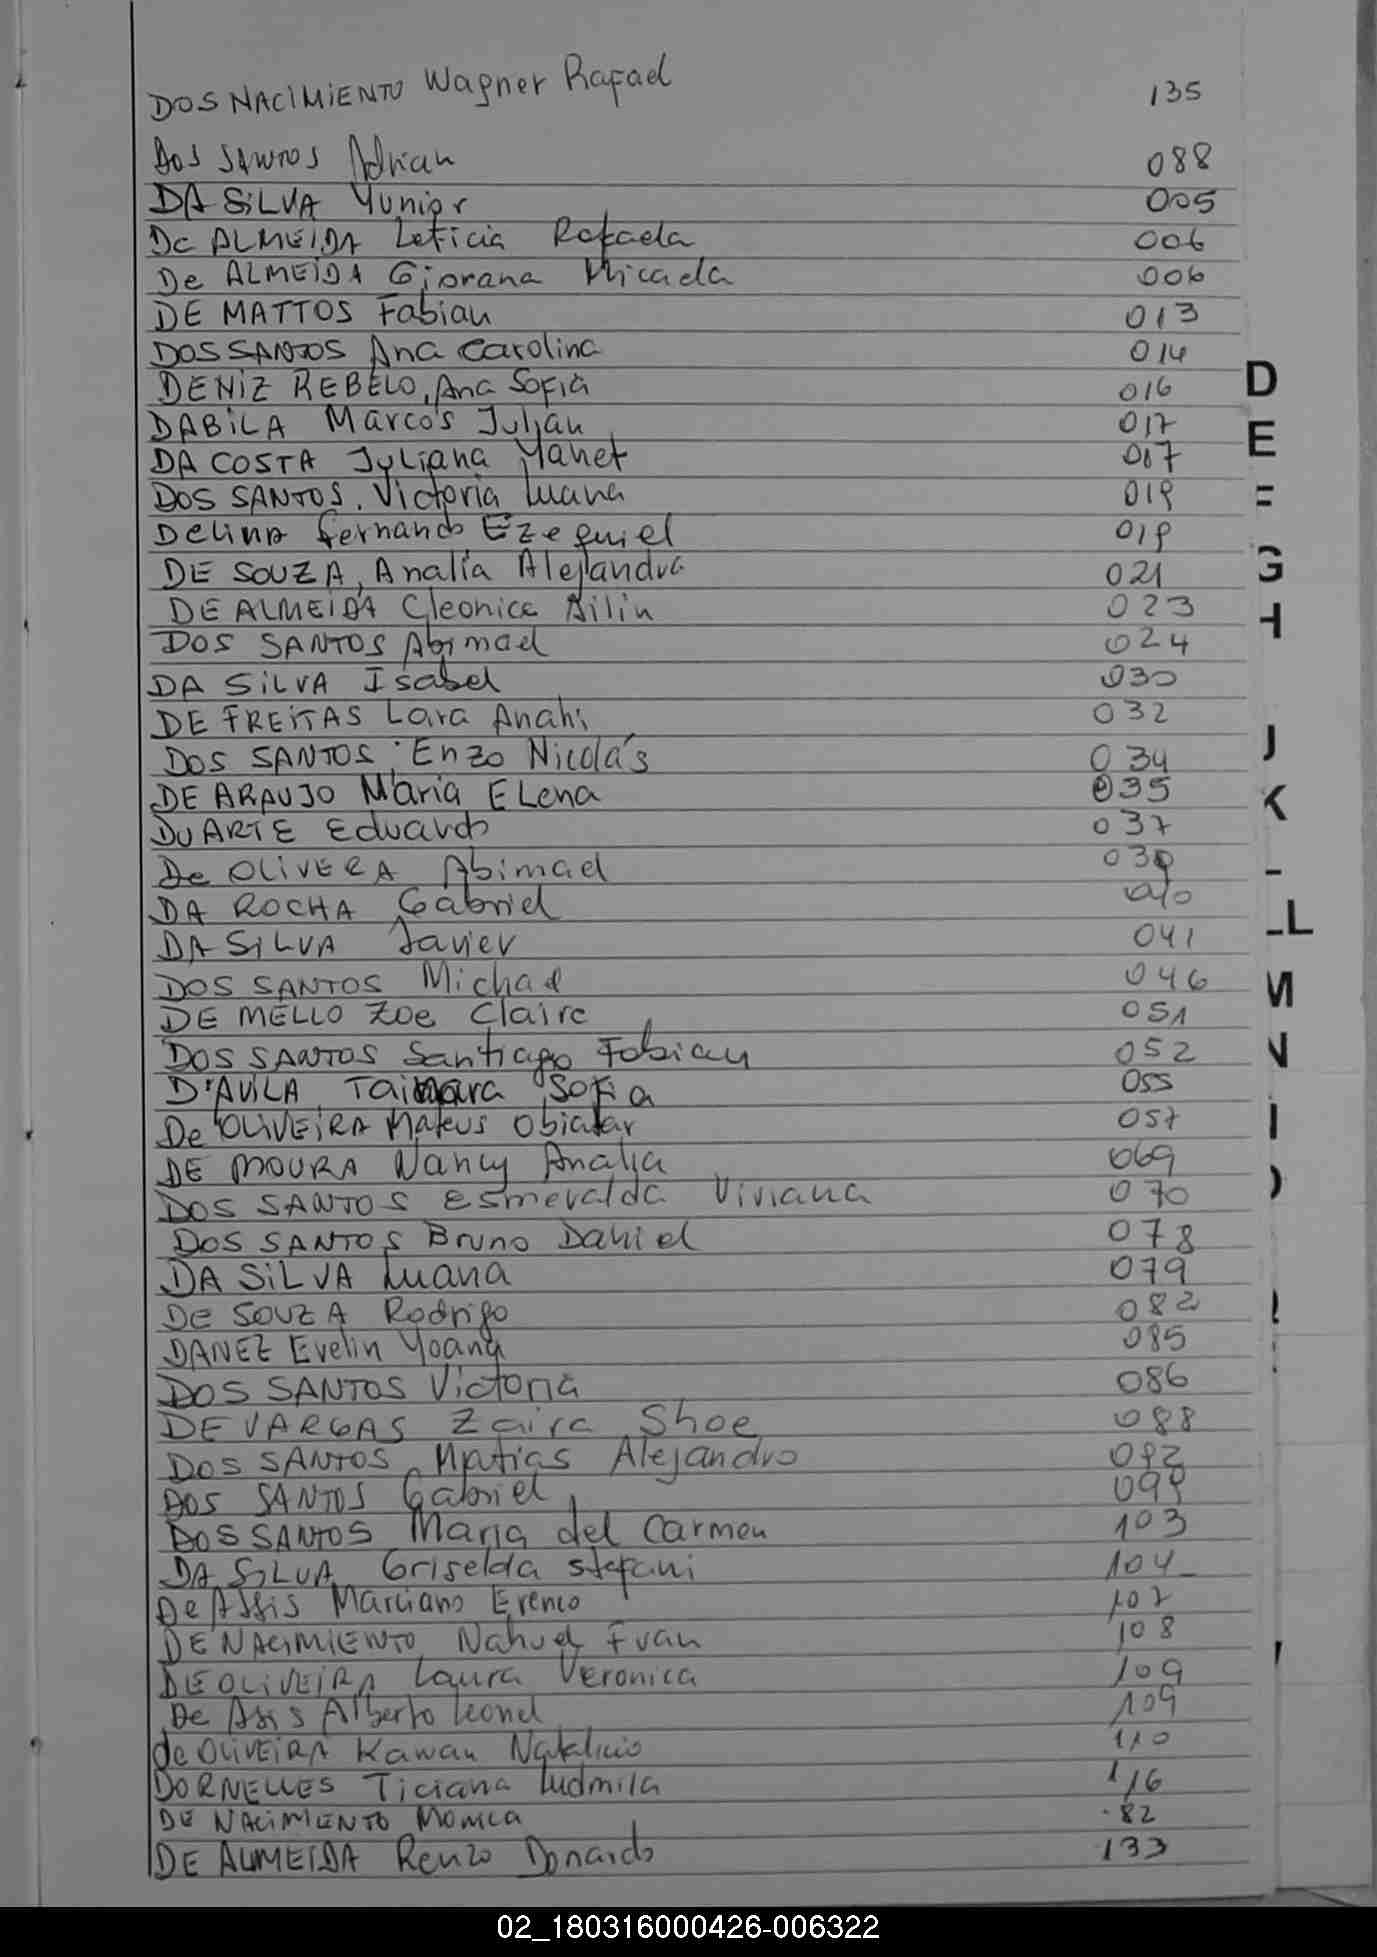 DOS NACIMIENTO Wagner Rafael 135
Dos SANTOS Adrian 088
DA SiLVA Yunior 005
De ALMEIDA Leticia Rafaela 006
De ALMEIDA Giovana Micaela 006
DE MATTOS Fabian 013
DOS SANTOS Ana Carolina 014
DENIZ REBELO, Ana Sofia 016
DABILA Marcos Julian 017
DA COSTA Juliana Yanet 017
DOS SANTOS, Victoria Luana 019
Delina Fernando Ezequiel 019
DE SOUZA, Analía Alejandra 021
DE ALMEIDA Cleonice Ailin 023
DOS SANTOS Abimael 024
DA SiLVA Isabel 030
DE FREITAS Lara Anahi 032
DOS SANTOS Enzo Nicolás 034
DE ARAUJO Maria ELena 035
DUARTE Eduardo 037
De OLIVERA Abimael 039
DA ROCHA Gabriel
DA SILVA Javier 041
DOS SANTOS Michael 046
DE MELLO Zoe Claire 051
DOS SANTOS Santiago Fabian 052
D'AVILA Tainara Sofia 055
De OLIVEIRA Mateus 057
DE MOURA Nancy Analia 069
DOS SANTOS Esmeralda Viviana 070
DOS SANTOS Bruno Daniel 078
DA SiLVA Luana 079
De SOUZA Rodrigo 082
DANEZ Evelin Yoana 085
DOS SANTOS Victoria 086
DE VARGAS Zaira Shoe 088
DOS SANTOS Matias Alejandro 092
DOS SANTOS Gabriel 099
DOS SANTOS Maria del Carmen 103
DA SILVA Griselda Stefani 104
De Assis Marciano 107
DE NACIMIENTO Nahuel Ivan 108
DE OLIVEIRA Laura Veronica 109
De Asis Alberto Leonel 109
de OLIVEIRA Kawan Natalicio 110
DORNELLES Ticiana Ludmila 116
DE NACIMIENTO Monica 82
DE ALMEIDA Renzo Donardo 133
D
E
G
J
K
L
M
N
02_180316000426-006322